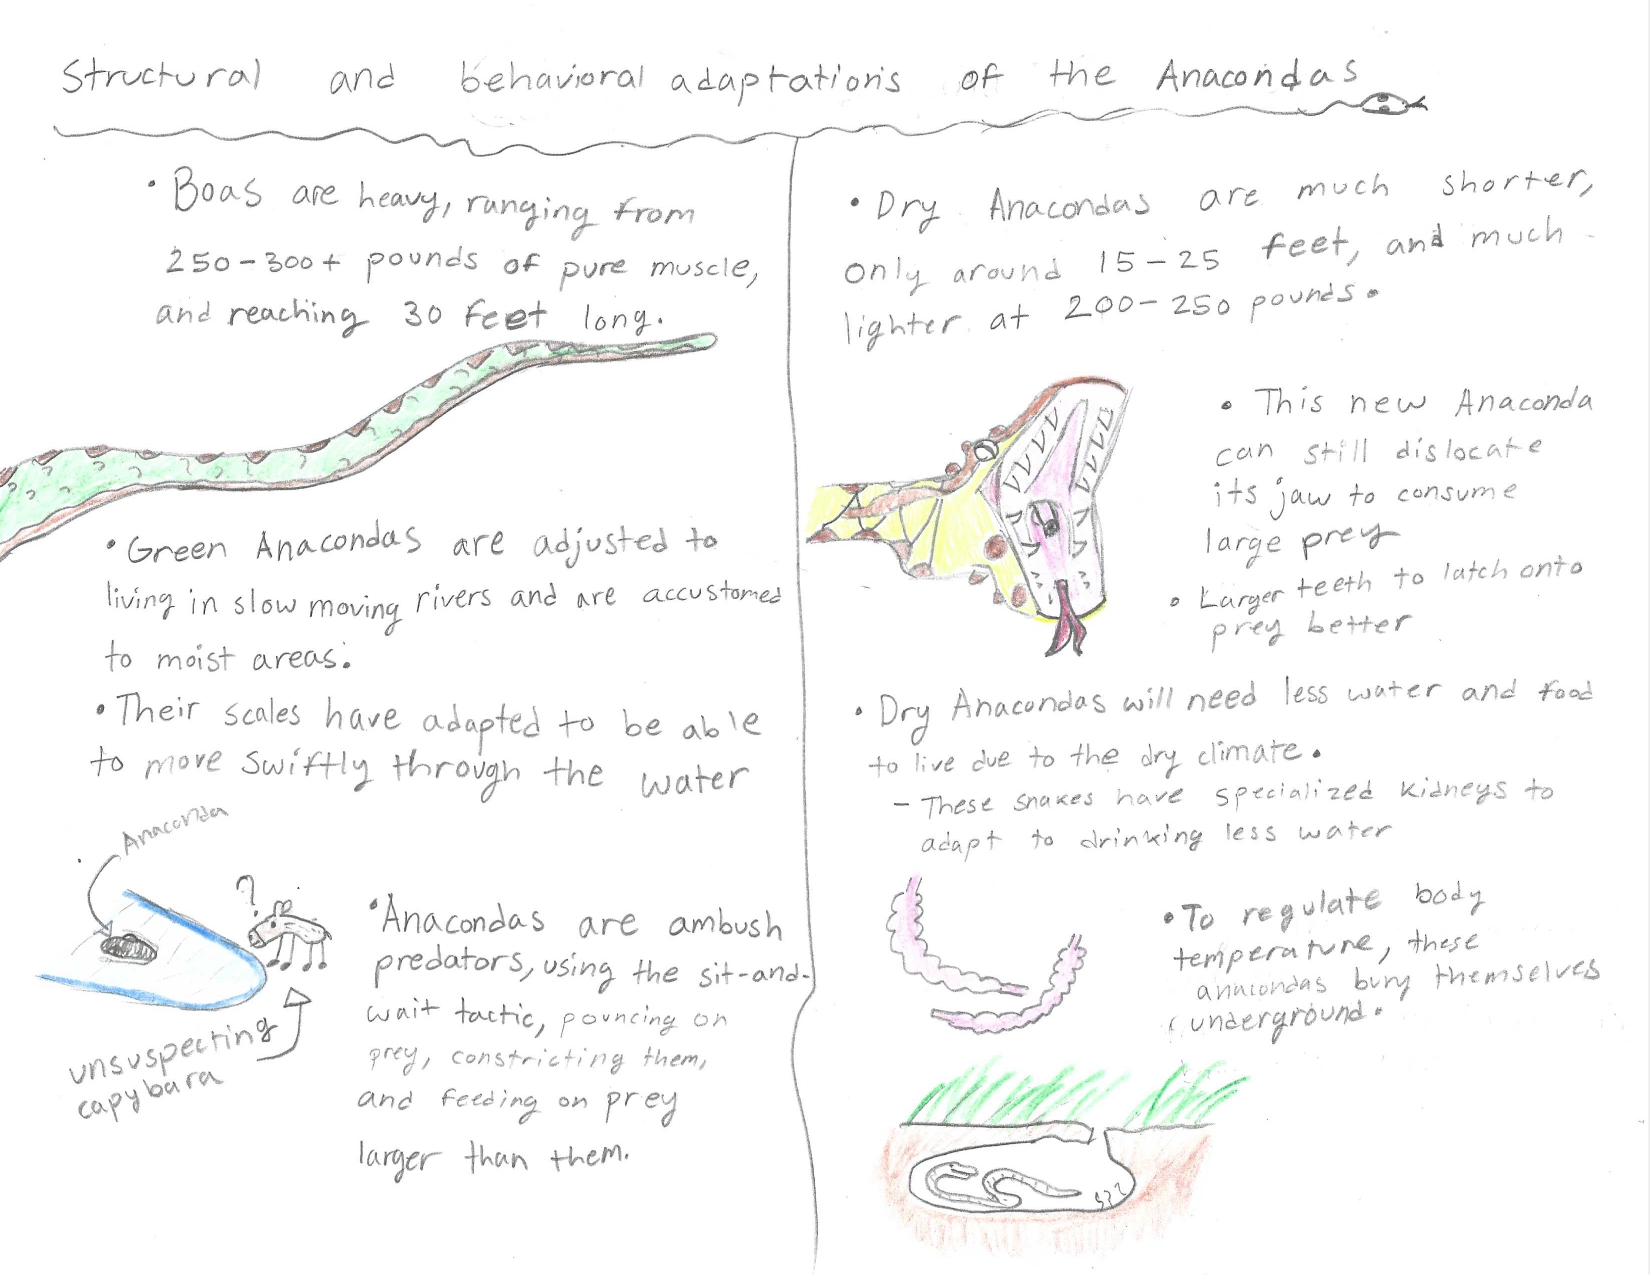 Structural and behavioral adaptations of the Anacondas
• Boas are heavy, ranging from
250-300+ pounds of pure muscle,
and reaching 30 feet long.
• Green Anacondas are adjusted to
living in slow moving rivers and are accustomed
to moist areas.
• Their scales have adapted to be able
to move swiftly through the water
Anaconda
?
unsuspecting
capybara
• Anacondas are ambush
predators, using the sit-and-
wait tactic, pouncing on
prey, constricting them,
and feeding on prey
larger than them.
• Dry Anacondas are much shorter,
only around 15-25 feet, and much
lighter at 200-250 pounds.
• This new Anaconda
can still dislocate
its jaw to consume
large prey
• Larger teeth to latch onto
prey better
• Dry Anacondas will need less water and food
to live due to the dry climate.
- These snakes have specialized kidneys to
adapt to drinking less water
• To regulate body
temperature, these
anacondas bury themselves
underground.